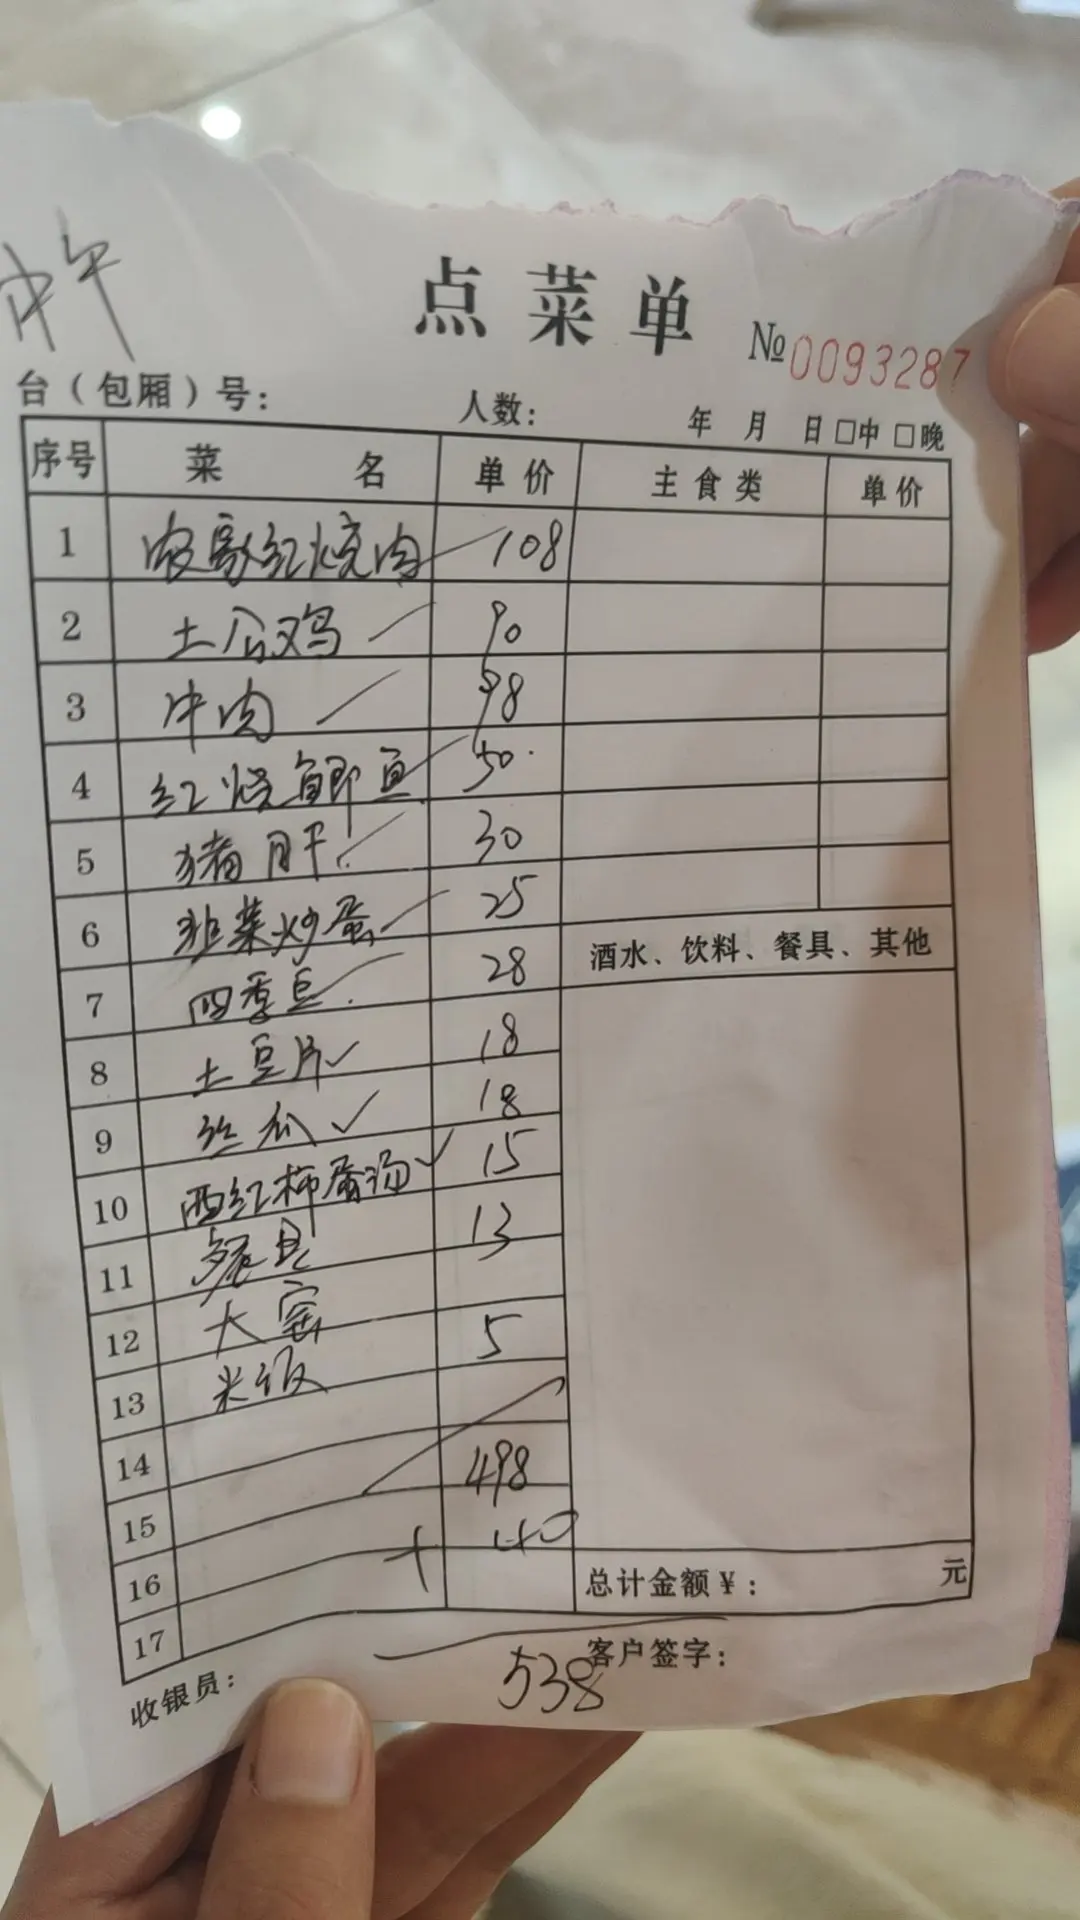 中午
点菜单
№0093287
台（包厢）号： 人数： 年 月 日 □中 □晚
序号 菜 名 单价 主食类 单价
1 农家红烧肉 108
2 土公鸡 90
3 牛肉 98
4 红烧鲫鱼 50
5 猪肝 30
6 韭菜炒蛋 25
酒水、饮料、餐具、其他
7 四季豆 28
8 土豆片 18
9 丝瓜 18
10 西红柿蛋汤 15
11 餐具 13
12 大窑 5
13 米饭
14 498
15 + 40
16
总计金额￥： 元
17
收银员： 客户签字：
538